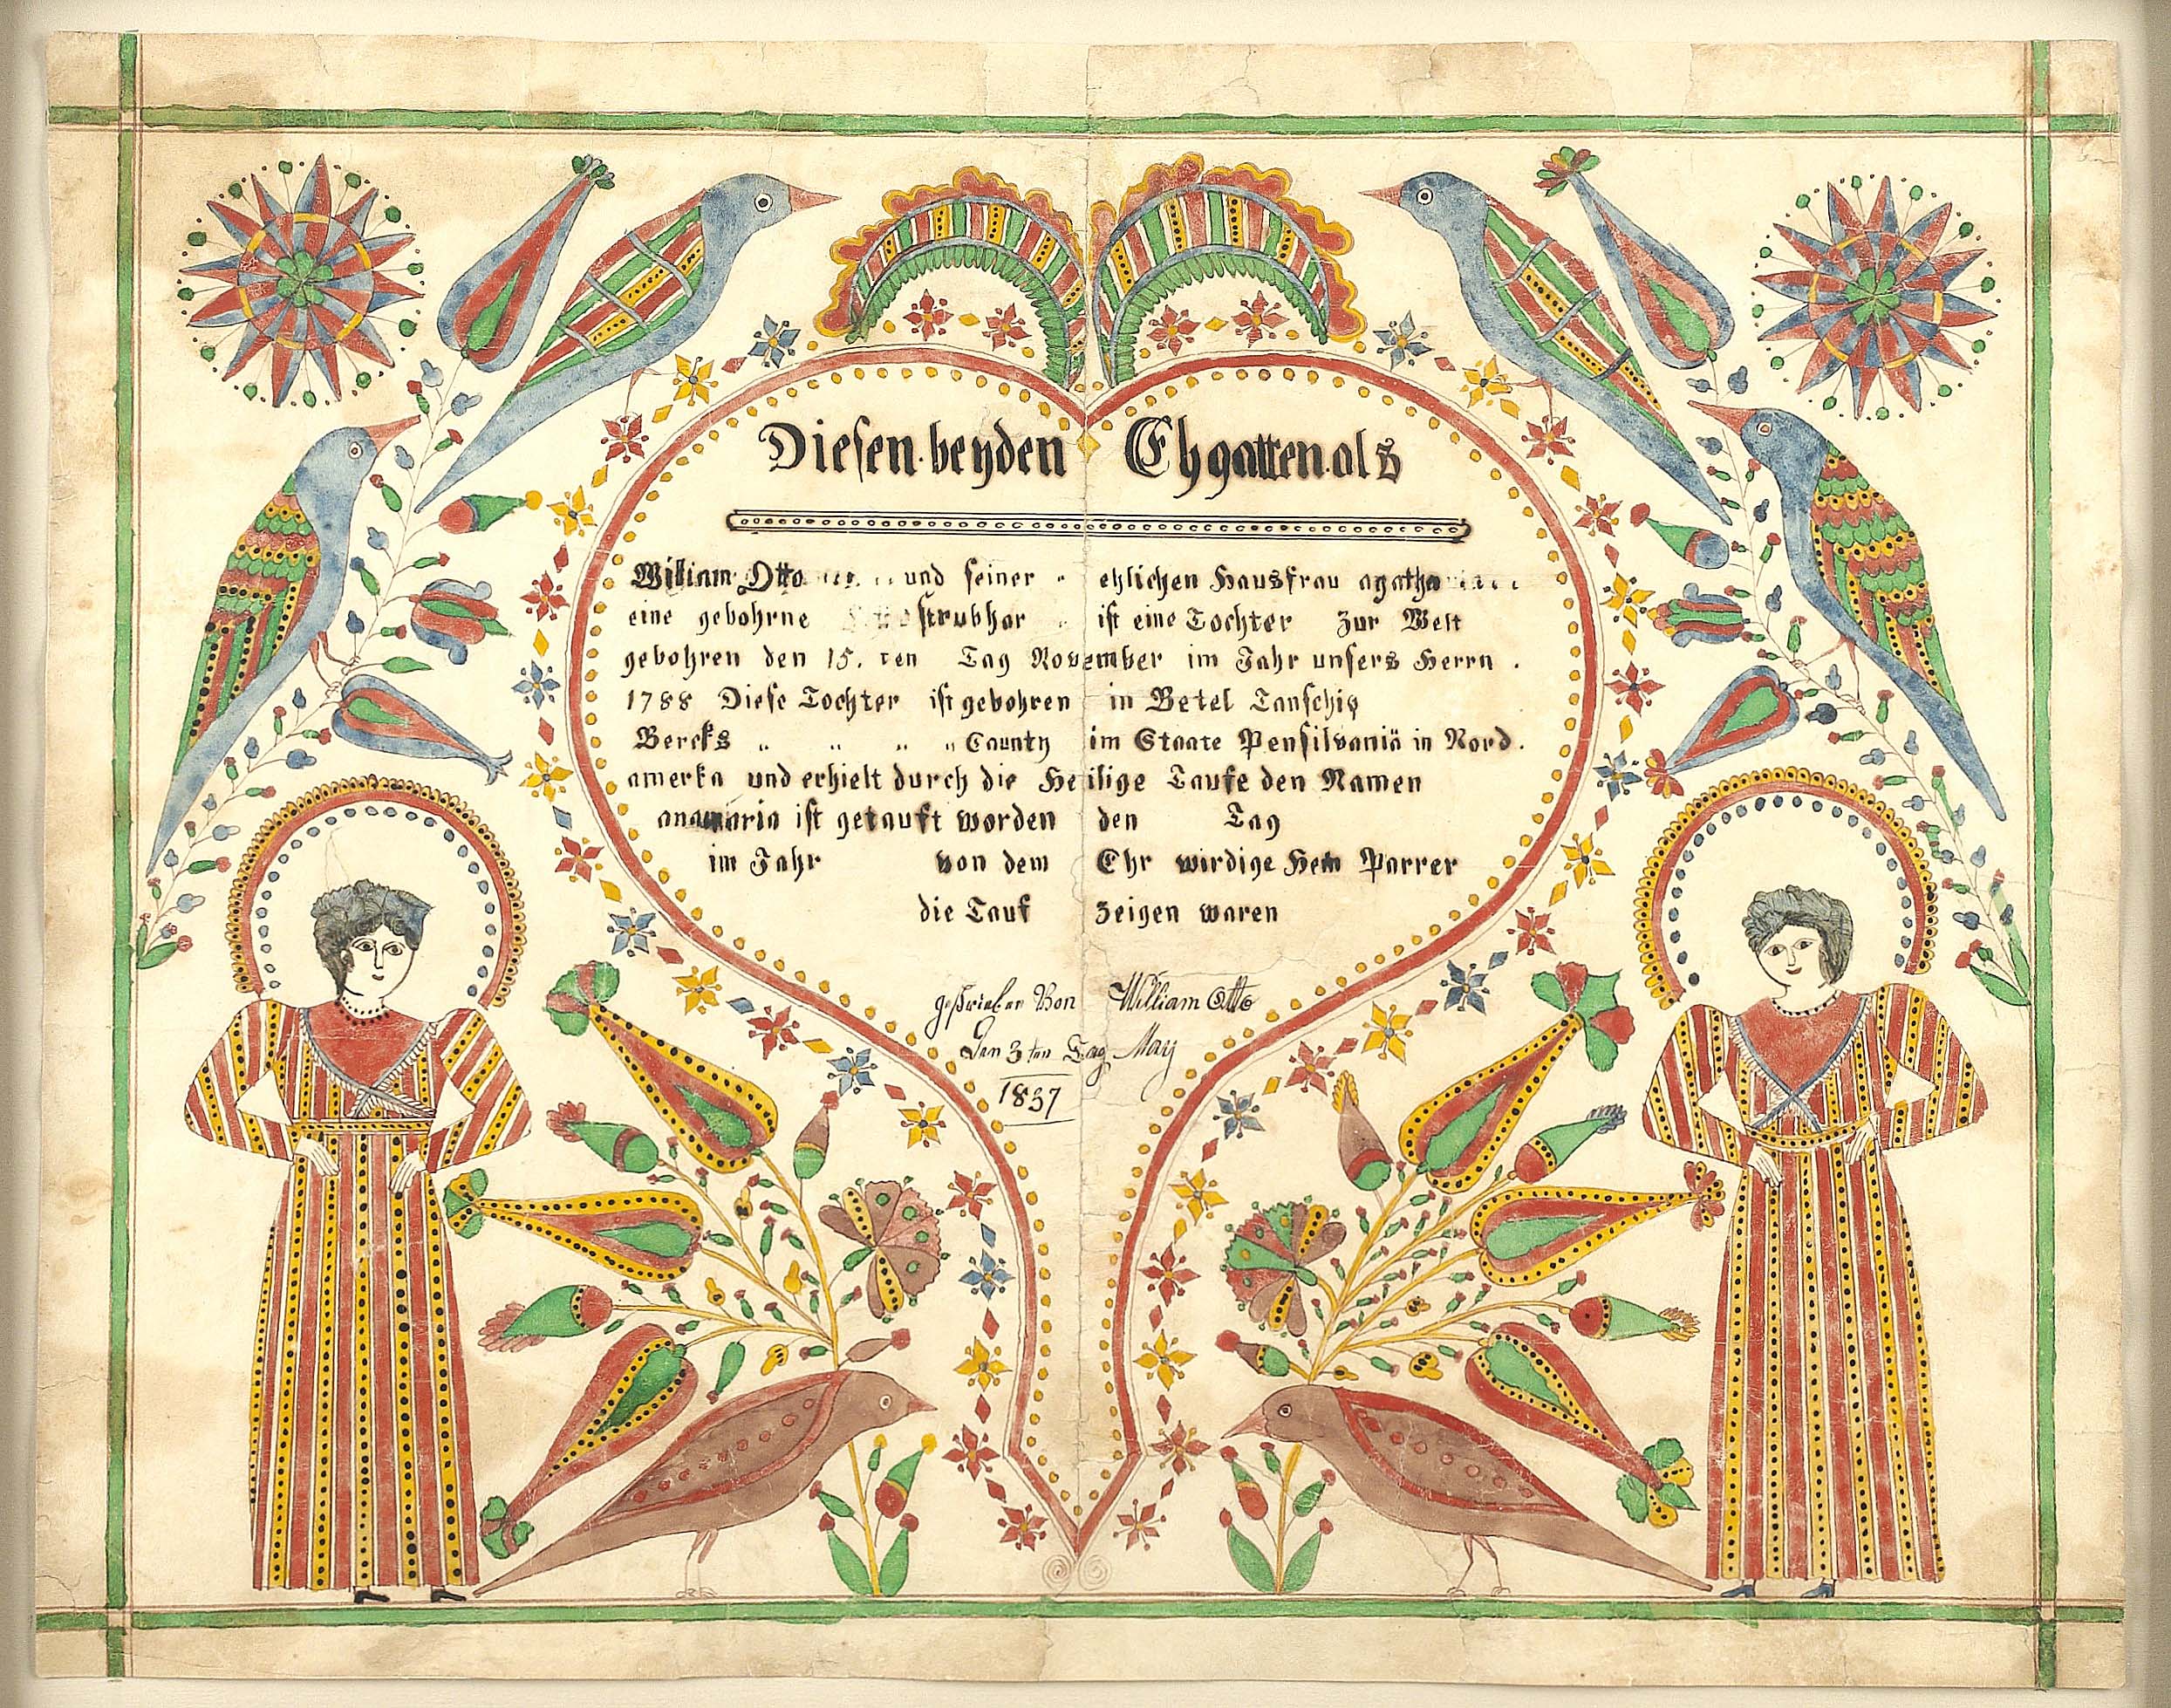 Diesen beyden Ehgatten als
William Otto und seiner ehlichen Hausfrau agatha
eine gebohrne ist eine Tochter Zur Welt
gebohren den 15. ten Tag November im Jahr unsers Herrn .
1788 Diese Tochter ist gebohren in Betel Taunschip
Bercks " " " " Caunty im Staate Pensilvaniä in Nord.
amerka und erhielt durch die Heilige Taufe den Namen
anamaria ist getauft worden den Tag
im Jahr von dem Ehr wirdige Herrn Parrer
die Tauf zeigen waren
geschrieben Von William Otto
Den 3 ten Tag May
1837